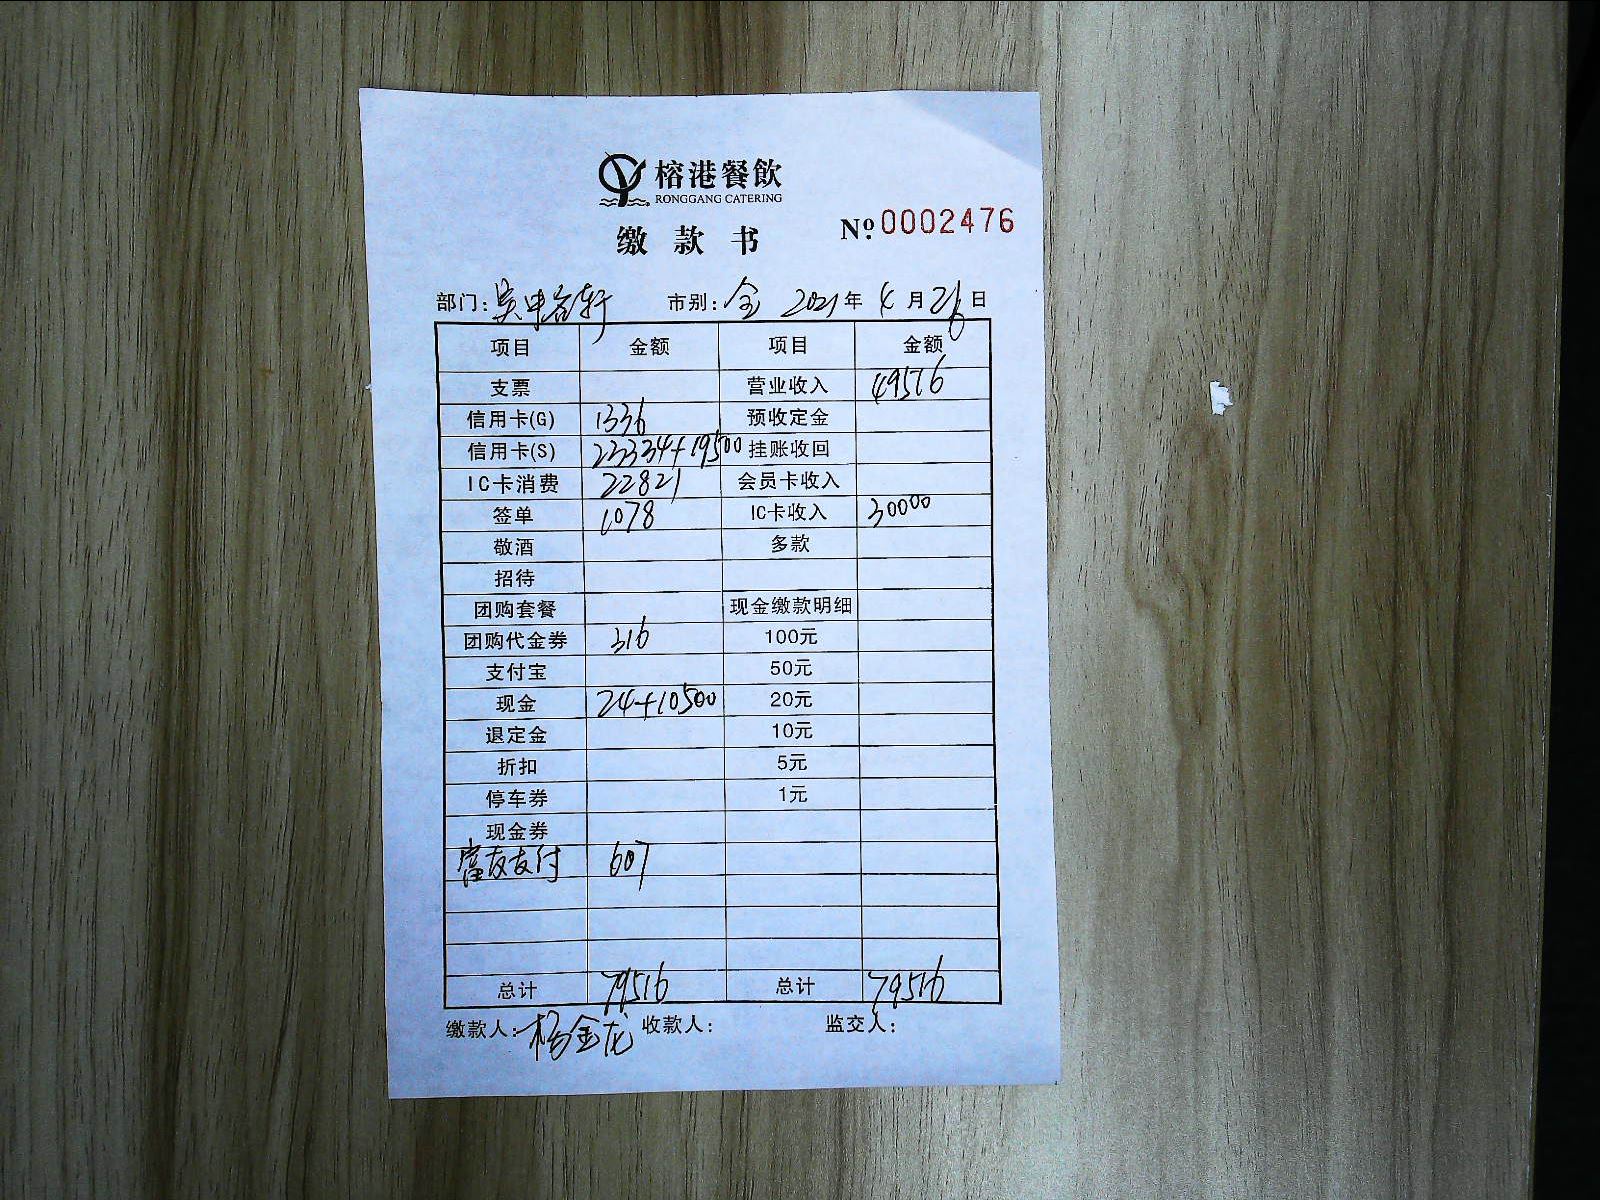 榕港餐飲
RONGGANG CATERING
缴款书
№:0002476
部门: 吴中容轩 市别: 全 2021年 4月26日
项目 金额 项目 金额
支票 营业收入 49516
信用卡(G) 1336 预收定金
信用卡(S) 23334+19500 挂账收回
IC卡消费 22821 会员卡收入
签单 1078 IC卡收入 30000
敬酒 多款
招待
团购套餐 现金缴款明细
团购代金券 316 100元
支付宝 50元
现金 24+10500 20元
退定金 10元
折扣 5元
停车券 1元
现金券
富友支付 607
总计 79516 总计 79516
缴款人: 杨金龙 收款人: 监交人: